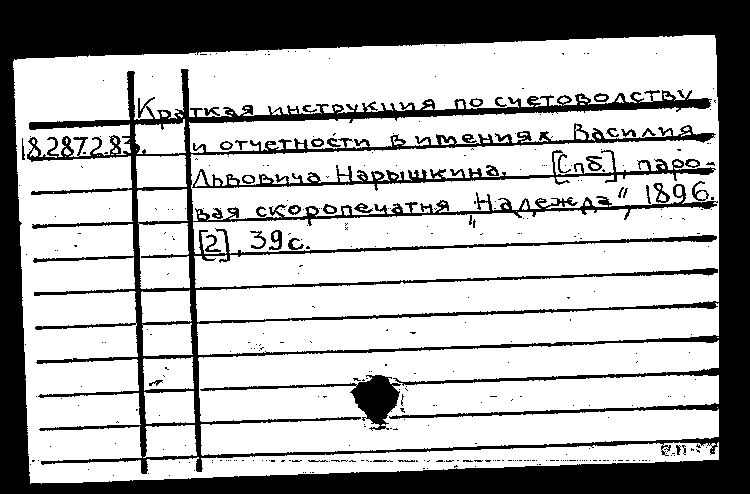 Краткая инструкция по счетоводству
18.287.2.83. и отчетности в имениях Василия
Львовича Нарышкина. [Спб.], паро-
вая скоропечатня „Надежда“, 1896.
[2], 39 с.